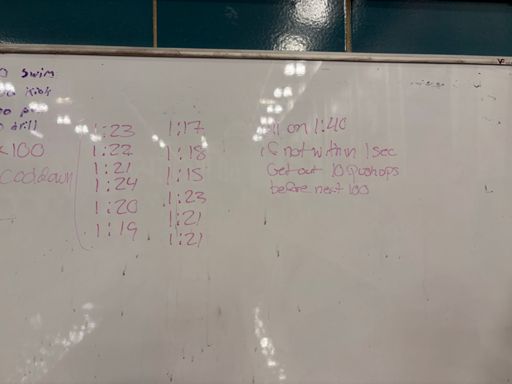 swim
kick
drill
100
cooldown
1:23
1:22
1:21
1:24
1:20
1:19
1:17
1:18
1:15
1:23
1:21
1:21
on 1:40
if not within 1 sec
Get out 10 pushups
before next 100